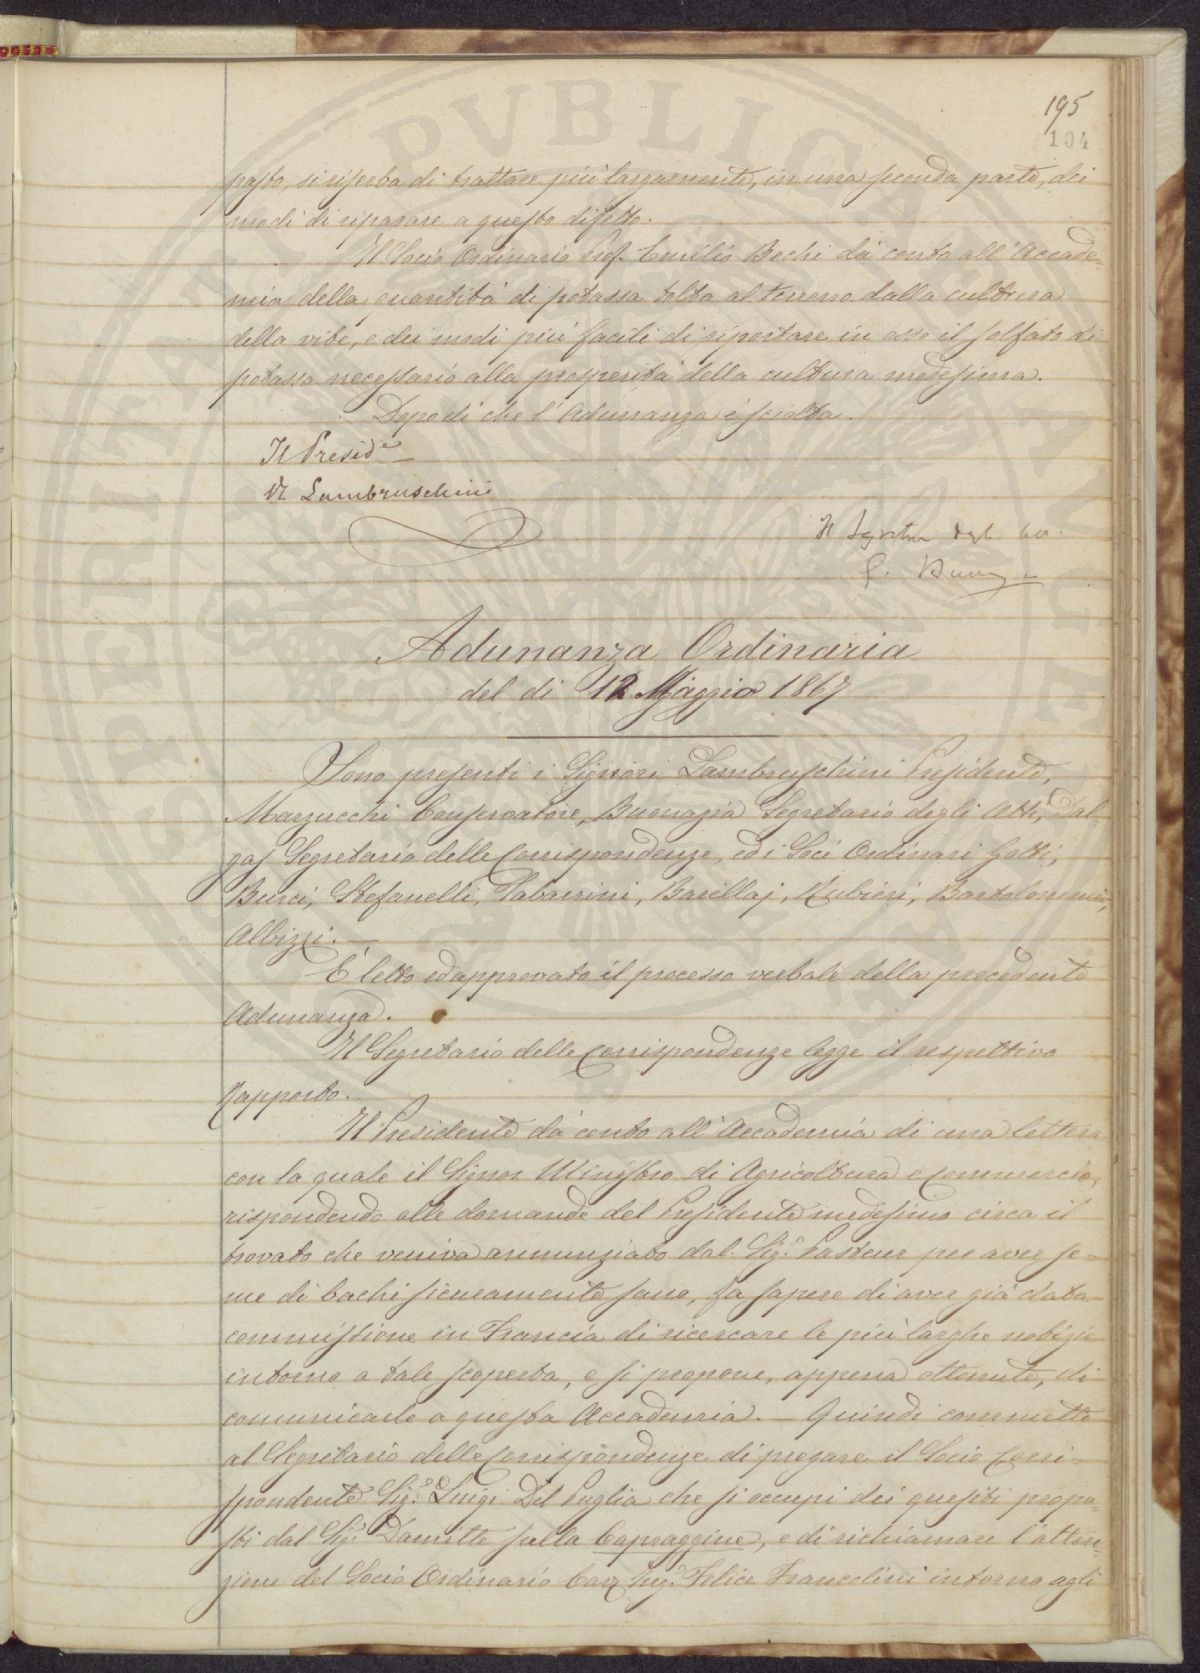 195
104
posto, si riserba di trattare più largamente, in una seconda parte, dei
modi di riparare a questo difetto.
Il Socio Ordinario Prof. Emilio Bechi dà conto all'Accade-
mia della quantità di potassa tolta al terreno dalla cultura
della vite, e dei modi più facili di riportare in esso il solfato di
potassa necessario alla prosperità della cultura medesima.
Dopo di che l'Adunanza è sciolta.
Il Preside
R Lambruschini
Il Segretar degli Atti
Adunanza Ordinaria
del dì 12 Maggio 1867
Sono presenti i Signori Lambruschini Presidente,
Marzucchi Conservatore, Buonazia Segretario degli Atti, Dal-
gas Segretario delle Corrispondenze, ed i Soci Ordinari Gotti,
Burci, Stefanelli, Tabarrini, Barellaj, Rubieri, Bartolommei,
Albizzi.
È letto ed approvato il processo verbale della precedente
Adunanza.
Il Segretario delle Corrispondenze legge il respettivo
Rapporto.
Il Presidente dà conto all'Accademia di una lettera
con la quale il Signor Ministro di Agricoltura e Commercio,
rispondendo alle domande del Presidente medesimo circa il
trovato che veniva annunziato dal Sig. Pasteur per aver se-
me di bachi sicuramente sano, fa sapere di aver già data
commissione in Francia di ricercare le più larghe notizie
intorno a tale scoperta, e si propone, appena ottenute, di
comunicarle a questa Accademia. — Quindi commette
al Segretario delle Corrispondenze di pregare il Socio Corri-
spondente Sig. Luigi Del Puglia che si occupi dei quesiti propo-
sti dal Sig. Damitte sulla Capraggine, e di richiamare l'atten-
zione del Socio Ordinario Cav. Ing. Felice Francolini intorno agli